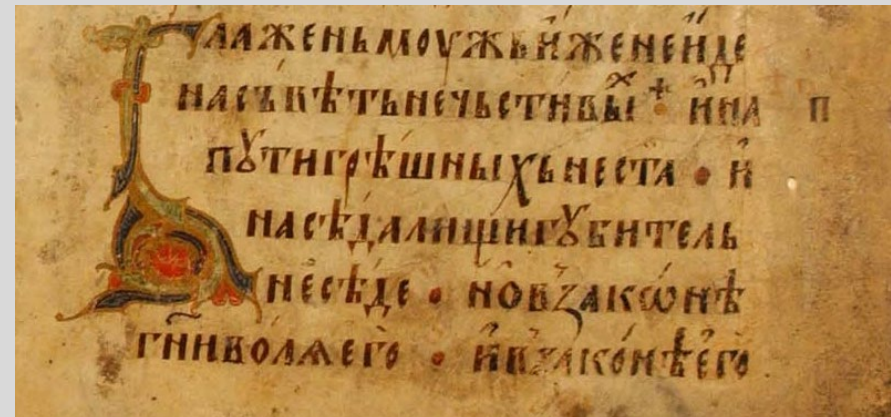 Блаженьмоужьйженейде
насъвѣтьнечьстивыⷯ · йна п
пꙋтигрѣшныхьнеста · й
насѣдалищигꙋбитель
несѣде · новзаконѣ
гн҃иволѧего · йвзаконѣего